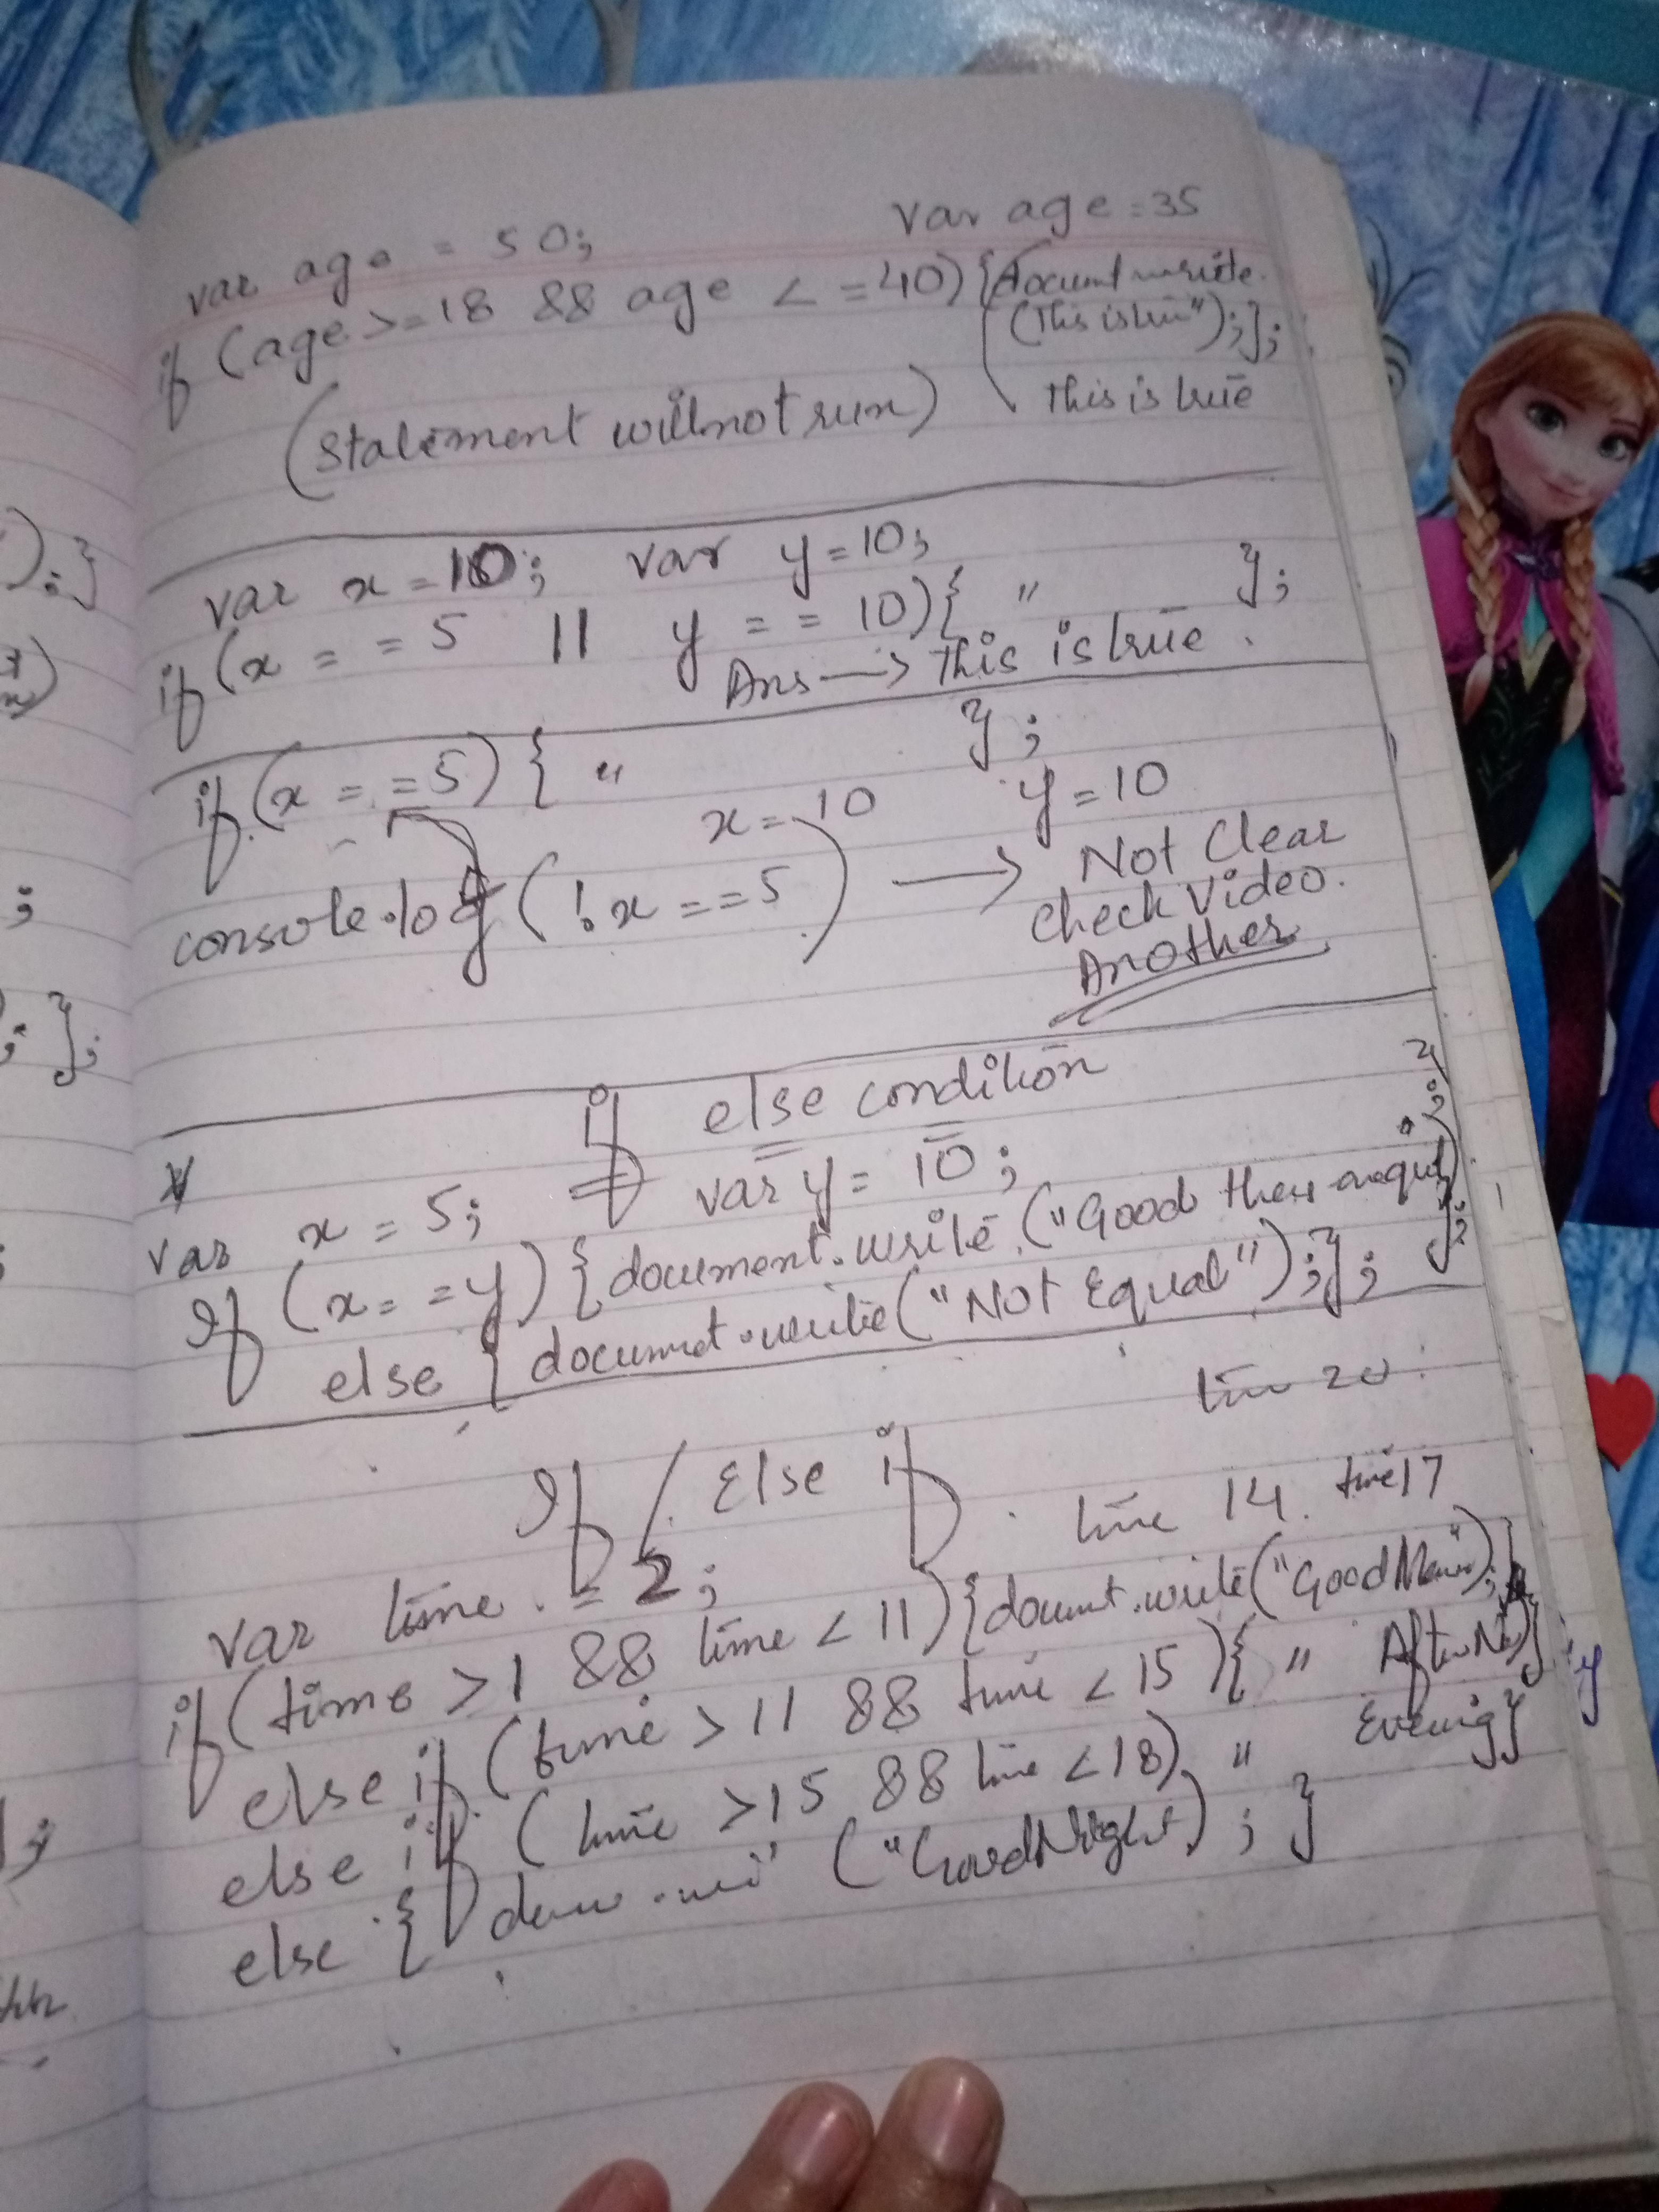 var age = 50;
var age = 35
if (age >= 18 && age < = 40) {document write.
(This is true");};
(statement will not run)
This is true
var x = 10; var y = 10;
if (x = = 5 || y = = 10) { " };
Ans → This is true.
if (x = = 5) { " };
x = 10 y = 10
console.log (!x == 5) → Not Clear
Check Video.
Another
if else condition
var x = 5; var y = 10;
If (x = = y) {document.write ("Good these are equal
else { documnt.write ("Not Equal");};
time 20
If / Else if
time 14. time 17
var time = 2;
if (time > 1 && time < 11) {documt.write ("Good
else if (time > 11 && time < 15) { "
else if (time > 15 && time < 18) " Evening }
else { ("Good Night) ; }